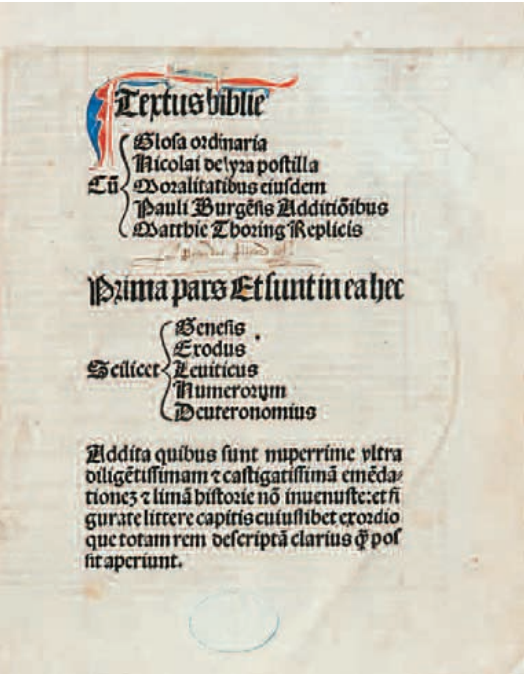 Textus biblie
Cū
Glosa ordinaria
Nicolai de lyra postilla
Moralitatibus eiusdem
Pauli Burgēsis Additiōibus
Matthie Thoring Replicis
Prima pars Et sunt in ea hec
Scilicet
Genesis
Exodus
Leuiticus
Numerorum
Deuteronomius
Addita quibus sunt nuperrime vltra
diligētissimam ⁊ castigatissimā emēda⸗
tionez ⁊ limā historie nō inuenuste: et fi
gurate littere capitis cuiuslibet exordio
que totam rem descriptā clarius q̄ pos
sit aperiunt.